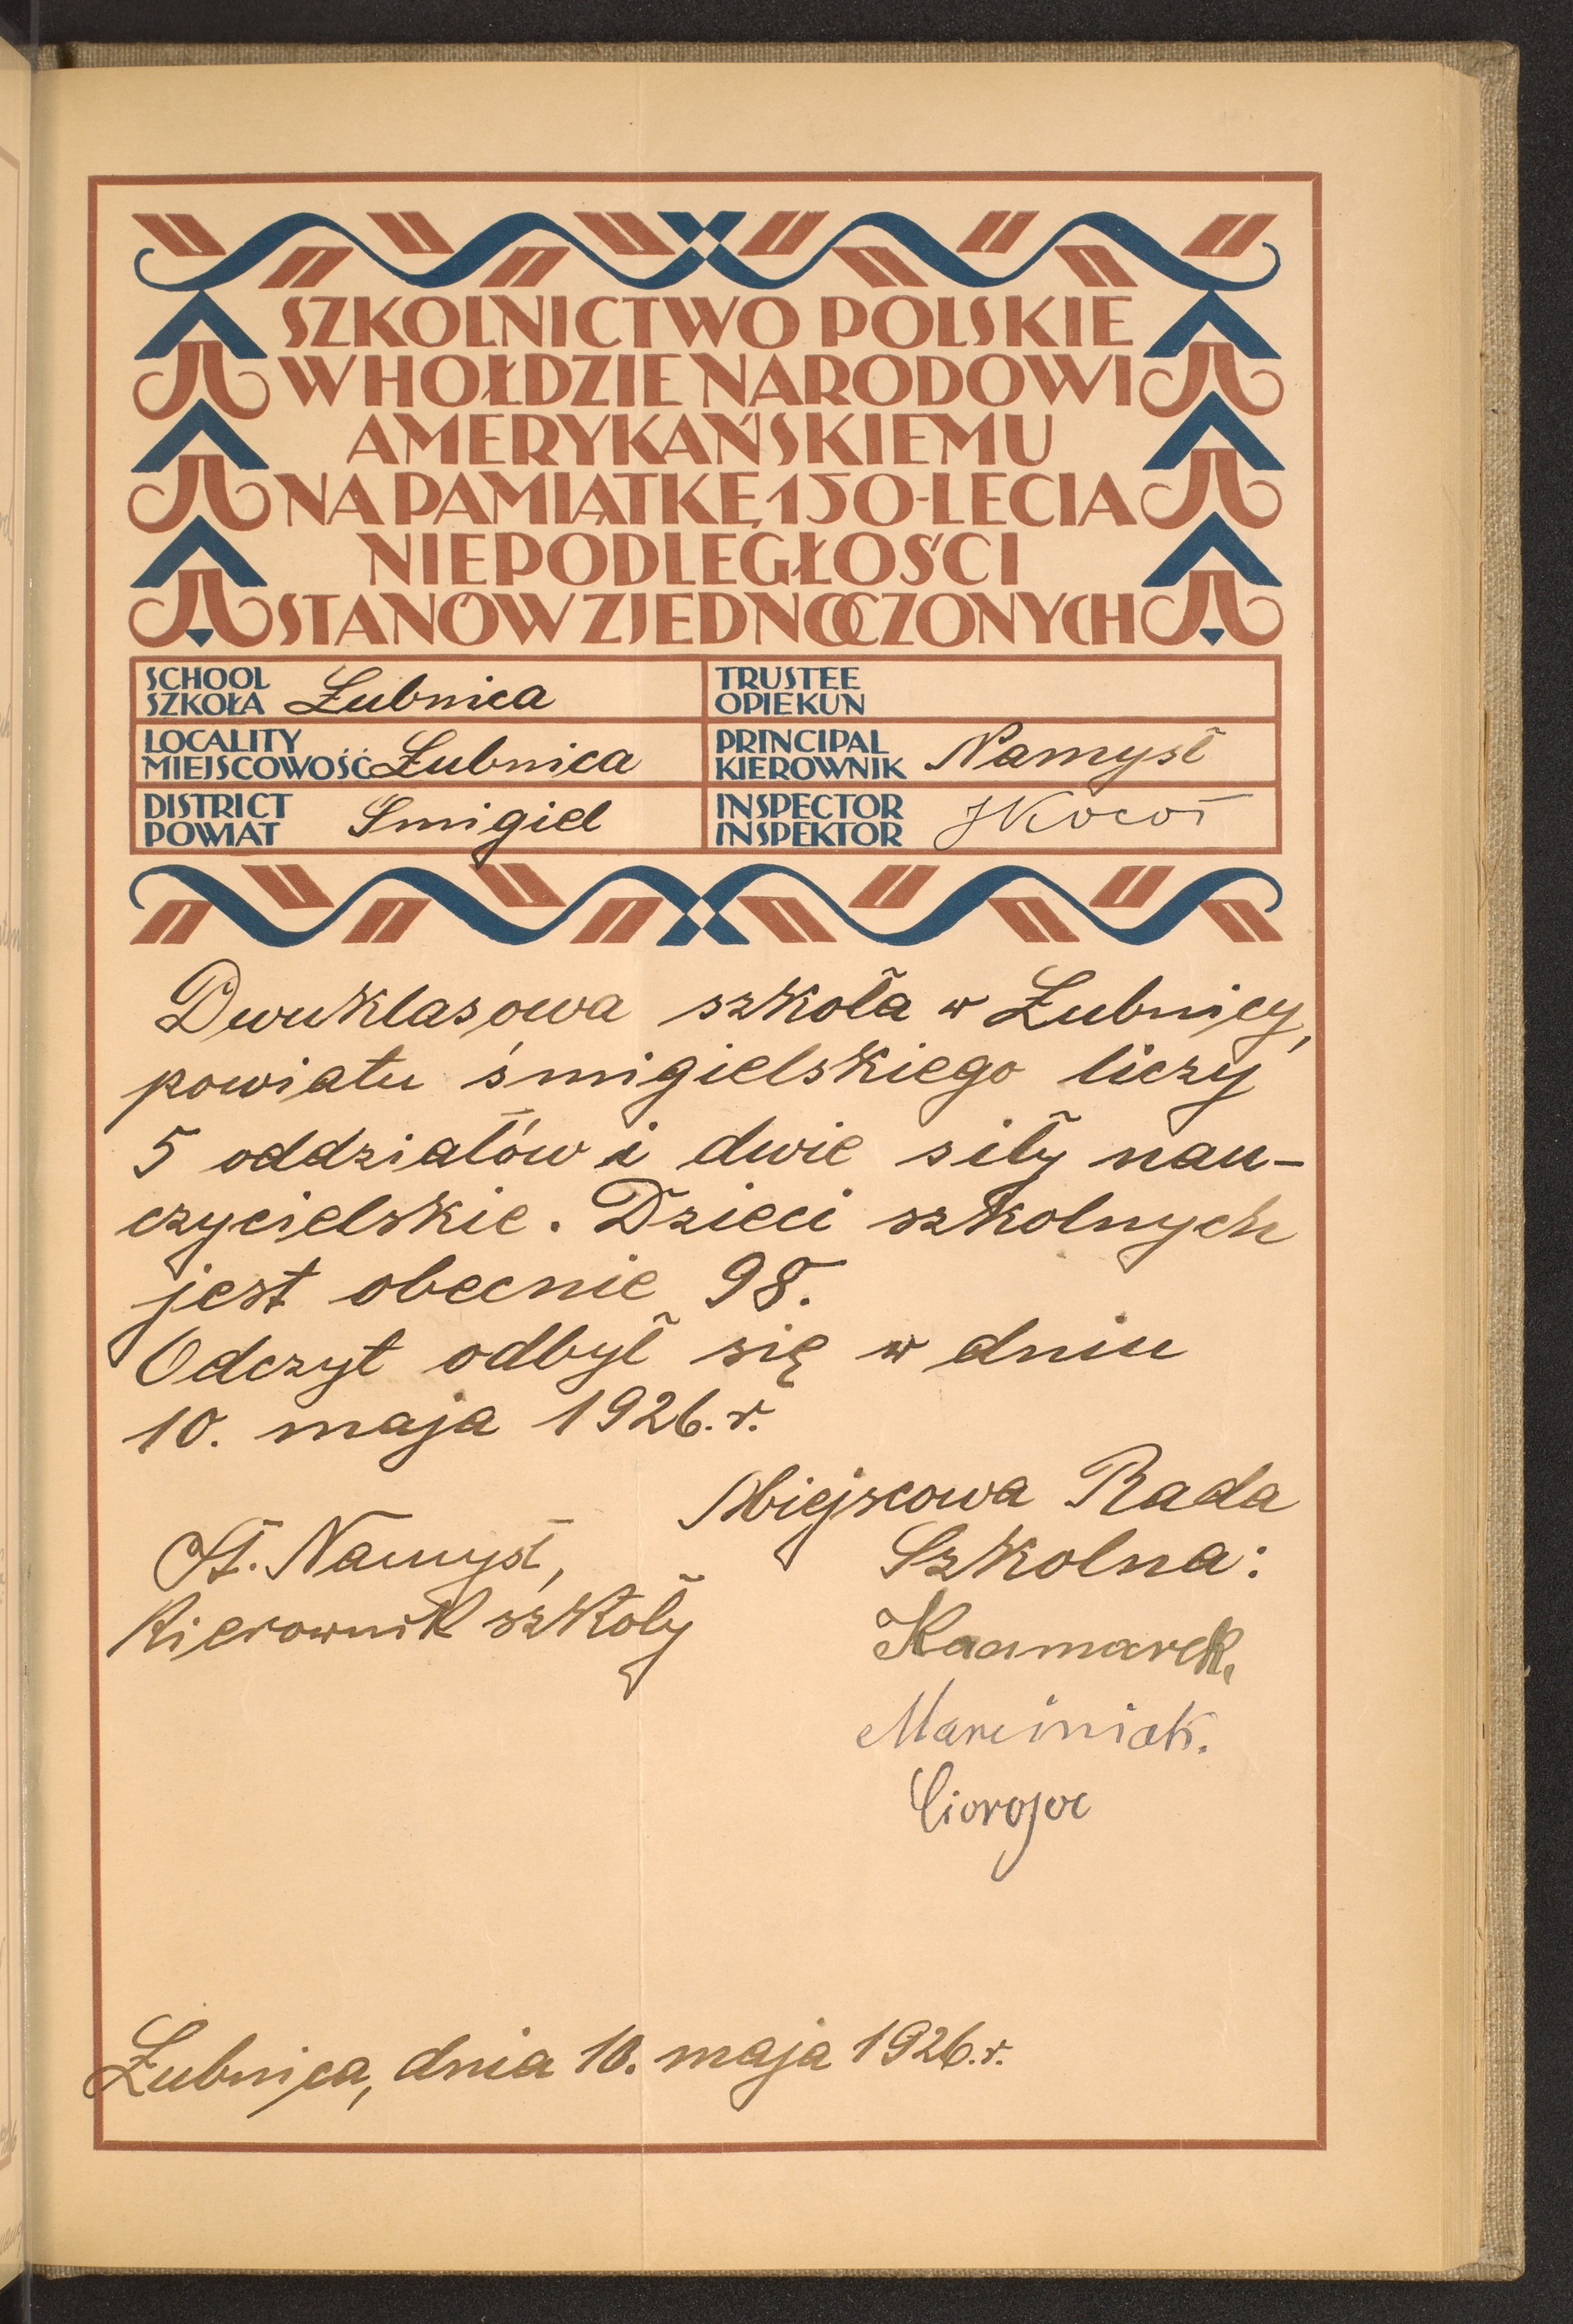 SZKOLNICTWO POLSKIE
W HOŁDZIE NARODOWI
AMERYKAŃSKIEMU
NA PAMIĄTKĘ 150-LECIA
NIEPODLEGŁOŚCI
STANÓW ZJEDNOCZONYCH
SCHOOL
SZKOŁA Łubnica
TRUSTEE
OPIEKUN
LOCALITY
MIEJSCOWOŚĆ Łubnica
PRINCIPAL
KIEROWNIK Namysł
DISTRICT
POWIAT Smigiel
INSPECTOR
INSPEKTOR
Dwuklasowa szkoła w Łubnicy,
powiatu śmigielskiego liczy
5 oddziałów i dwie siły nau-
czycielskie. Dzieci szkolnych
jest obecnie 98.
Odczyt odbył się w dniu
10. maja 1926. r.
Miejscowa Rada
Szkolna:
St. Namysł,
Kierownik szkoły
Kaczmarek.
Marciniak.
Łubnica, dnia 10. maja 1926. r.